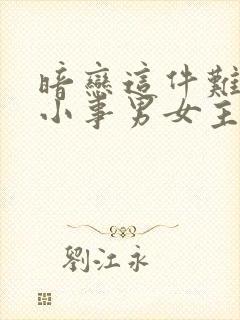 暗戀這件難
小事男女主
劉江永